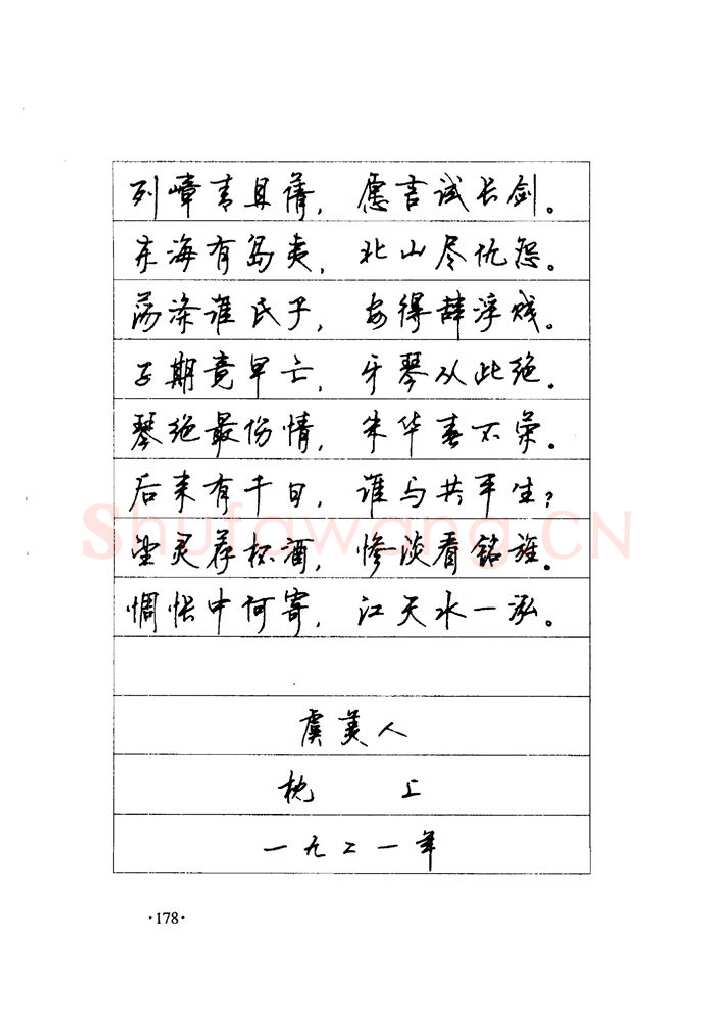 列嶂青且蒨，愿言试长剑。
东海有岛夷，北山尽仇怨。
荡涤谁氏子，安得辞浮贱。
子期竟早亡，牙琴从此绝。
琴绝最伤情，朱华春不荣。
后来有千日，谁与共平生？
望灵荐杯酒，惨淡看铭旌。
惆怅中何寄，江天水一泓。
虞美人
枕 上
一九二一年
·178·
Shufawang.CN